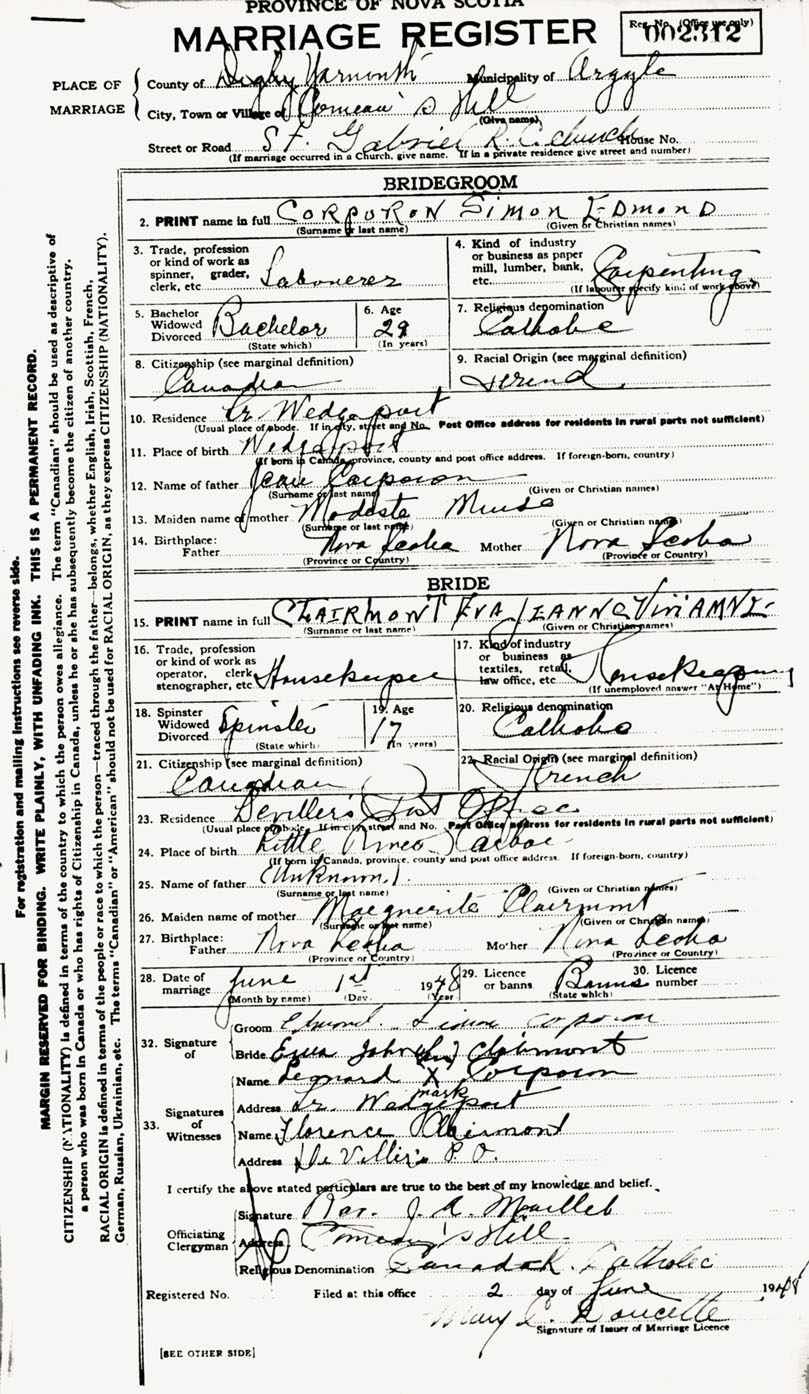 PROVINCE OF NOVA SCOTIA
MARRIAGE REGISTER
Reg. No. (Office use only)
002312
PLACE OF MARRIAGE
County of Digby Yarmouth Municipality of Argyle
City, Town or Village of Comeau's Hill
(Give name)
Street or Road St. Gabriel R. C. church House No.
(If marriage occurred in a Church, give name. If in a private residence give street and number)
BRIDEGROOM
2. PRINT name in full CORPORON SIMON EDMOND
(Surname or last name) (Given or Christian names)
3. Trade, profession or kind of work as spinner, grader, clerk, etc. Labourer
4. Kind of industry or business as paper mill, lumber, bank, etc. Carpenting
(If labourer specify kind of work above)
5. Bachelor Widowed Divorced Bachelor
(State which)
6. Age 29
(In years)
7. Religious denomination Catholic
8. Citizenship (see marginal definition)
Canadian
9. Racial Origin (see marginal definition)
10. Residence Lr. Wedgeport
(Usual place of abode. If in city, street and No. Post Office address for residents in rural parts not sufficient)
11. Place of birth Wedgeport
(If born in Canada, province, county and post office address. If foreign-born, country)
12. Name of father Jean Corporon
(Surname or last name) (Given or Christian names)
13. Maiden name of mother Modeste Muise
(Surname or last name) (Given or Christian names)
14. Birthplace: Father Nova Scotia Mother Nova Scotia
(Province or Country) (Province or Country)
BRIDE
15. PRINT name in full CLAIRMONT EVA JEANNE
(Surname or last name) (Given or Christian names)
16. Trade, profession or kind of work as operator, clerk stenographer, etc. Housekeeper
17. Kind of industry or business as textiles, retail, law office, etc. Housekeeping
(If unemployed answer "At Home")
18. Spinster Widowed Divorced Spinster
(State which)
19. Age 17
(In years)
20. Religious denomination Catholic
21. Citizenship (see marginal definition)
Canadian
22. Racial Origin (see marginal definition)
French
23. Residence Deviller's Post Office
(Usual place of abode. If in city, street and No. Post Office address for residents in rural parts not sufficient)
24. Place of birth Little River Harbor
(If born in Canada, province, county and post office address. If foreign-born, country)
25. Name of father (Unknown)
(Surname or last name) (Given or Christian names)
26. Maiden name of mother Marguerite Clairmont
(Surname or last name) (Given or Christian names)
27. Birthplace: Father Nova Scotia Mother Nova Scotia
(Province or Country) (Province or Country)
28. Date of marriage June 1st 1948
(Month by name) (Day) (Year)
29. Licence or banns Banns
(State which)
30. Licence number
32. Signature of
Groom Edmond Simon Corporon
Bride Eva Clairmont
33. Signatures of Witnesses
Name Leonard X Corporon
mark
Address Lr. Wedgeport
Name Florence Clairmont
Address De Viller's P. O.
I certify the above stated particulars are true to the best of my knowledge and belief.
Officiating Clergyman
Signature Rev. J. A.
Address Comeau's Hill
Religious Denomination Catholic
Registered No. Filed at this office 2 day of June 1948
Mary E. Doucette
Signature of Issuer of Marriage Licence
[SEE OTHER SIDE]
For registration and mailing instructions see reverse side.
MARGIN RESERVED FOR BINDING. WRITE PLAINLY, WITH UNFADING INK. THIS IS A PERMANENT RECORD.
CITIZENSHIP (NATIONALITY) is defined in terms of the country to which the person owes allegiance. The term "Canadian" should be used as descriptive of
a person who was born in Canada or who has rights of Citizenship in Canada, unless he or she has subsequently become the citizen of another country.
RACIAL ORIGIN is defined in terms of the people or race to which the person—traced through the father—belongs, whether English, Irish, Scottish, French,
German, Russian, Ukrainian, etc. The terms "Canadian" or "American" should not be used for RACIAL ORIGIN, as they express CITIZENSHIP (NATIONALITY).